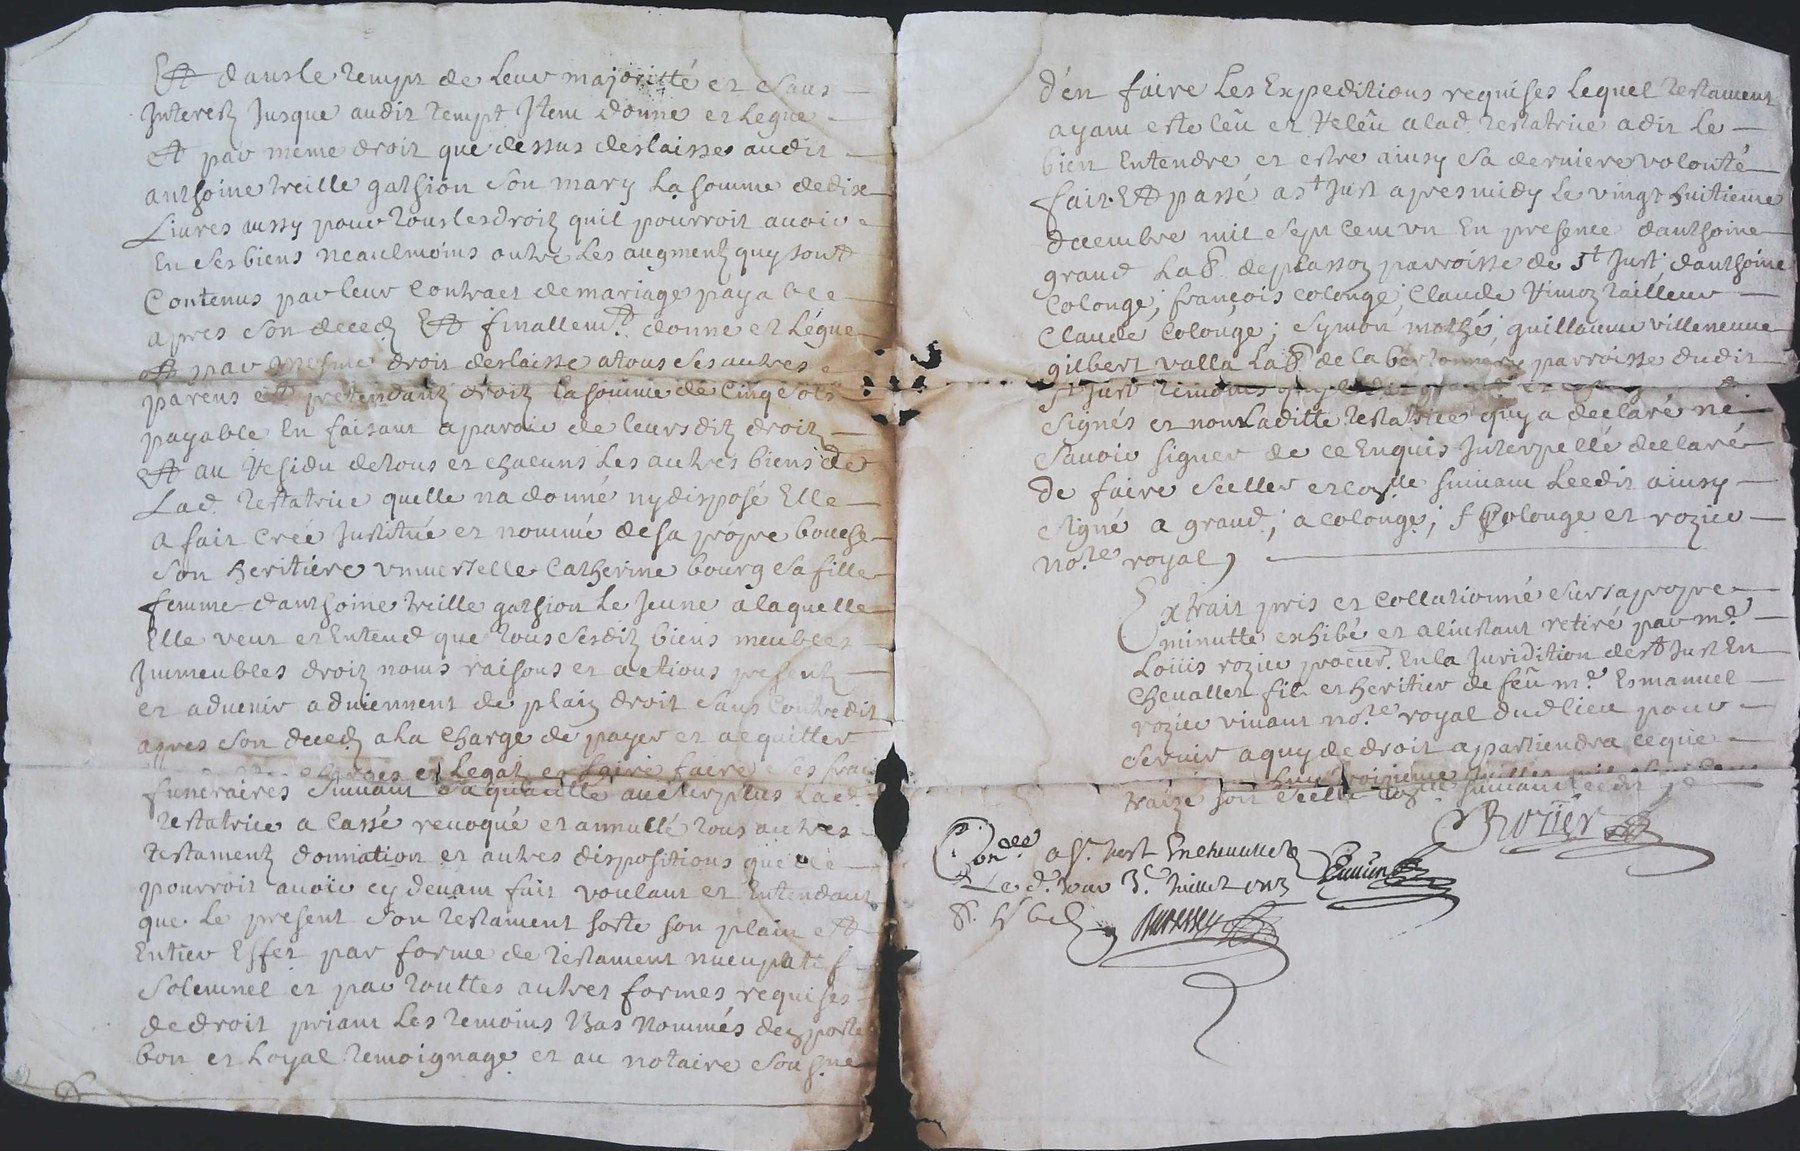 Et dans le temps de leur majoritté et sans
Interestz Jusque audit tempt Item donne et Legue
et par meme droit que dessus deslaisse audit
anthoine treille gathion son mary La somme de dix
Livres aussy pour tous les droitz quil pourroit avoir
En ses biens neaulmoins outre Les augmentz quy sont
Contenus par leur Contract de mariage payable
apres son decedz Et finallemt. donne et Légue
et par mesme droit deslaisse atous ses autres
parens et pretendantz droitz La somme de Cinq sols
payable En faisant aparoir de leursditz droitz
Et au Residu de tous et chacuns Les autres biens de
Lad. testatrice quelle na donné ny disposé Elle
a fait Créé Justitué et nommé de sa propre bouche
son heritiere universelle Catherine bourg sa fille
femme danthoine treille gathion Le Jeune a laquelle
Elle veut et Entend que tous sesditz biens meubles
Immeubles droitz noms raisons et actions presentz
et advenir adviennent de plain droit sans Contredit
apres son decedz ala Charge de payer et acquitter
charges et Legatz et faire faire ses frais
funeraires suivant sa qualitté au surplus Lad.
testatrice a Cassé revoqué et annullé tous autres
testamentz donnation et autres dispositions quelle
pourroit avoir cy devant fait voulant et Entendant
que Le present son testament sorte son plain et
Entier Effet par forme de testament nuncupatif
solemnel et par touttes autres formes requises
de droit priant Les temoins Bas Nommés den porter
bon et Loyal temoignage et au notaire sousne
d'en faire Les Expeditions requises Lequel testament
ayant este leü et Releü a lad. testatrice a dit Le
bien Entendre et estre ainsy sa derniere volonté
fait Et passé a st Just apres midy Le vingt huitieme
decembre mil sept Cent un En presence danthoine
grand Lab. de plassoy parroisse de st Just danthoine
Colonge; françois Colonge; Claude Vimoz tailleur
Claude Colonge; Symon mathé; guillaume villeneuve
gilbert valla Lab. de la bertonnery parroisse dudit
st Just temoins
signés et non Laditte testatrice quy a declaré ne
savoir signer de ce Enquis Interpellé declaré
de faire sceller et colle suivant Leedit ainsy
signé a grand; a colonge; f Colonge et rozier
no.re royal
Extrait pris et collationné sur sa propre
minutte exhibé et alinstant retiré par me.
Loüis rozier procur. En la Juridition de st Just En
Chevallet fils et heritier de feu me. Esmanuel
rozier vivant no.re royal dud. lieu pour
servir a quy de droit apartiendra ce que
troisieme Juillet mil
traize soit scellé suivant Leedit
Rozier
Con.ée a St. Just En chevallet
Le d. jour 3e. Juillet